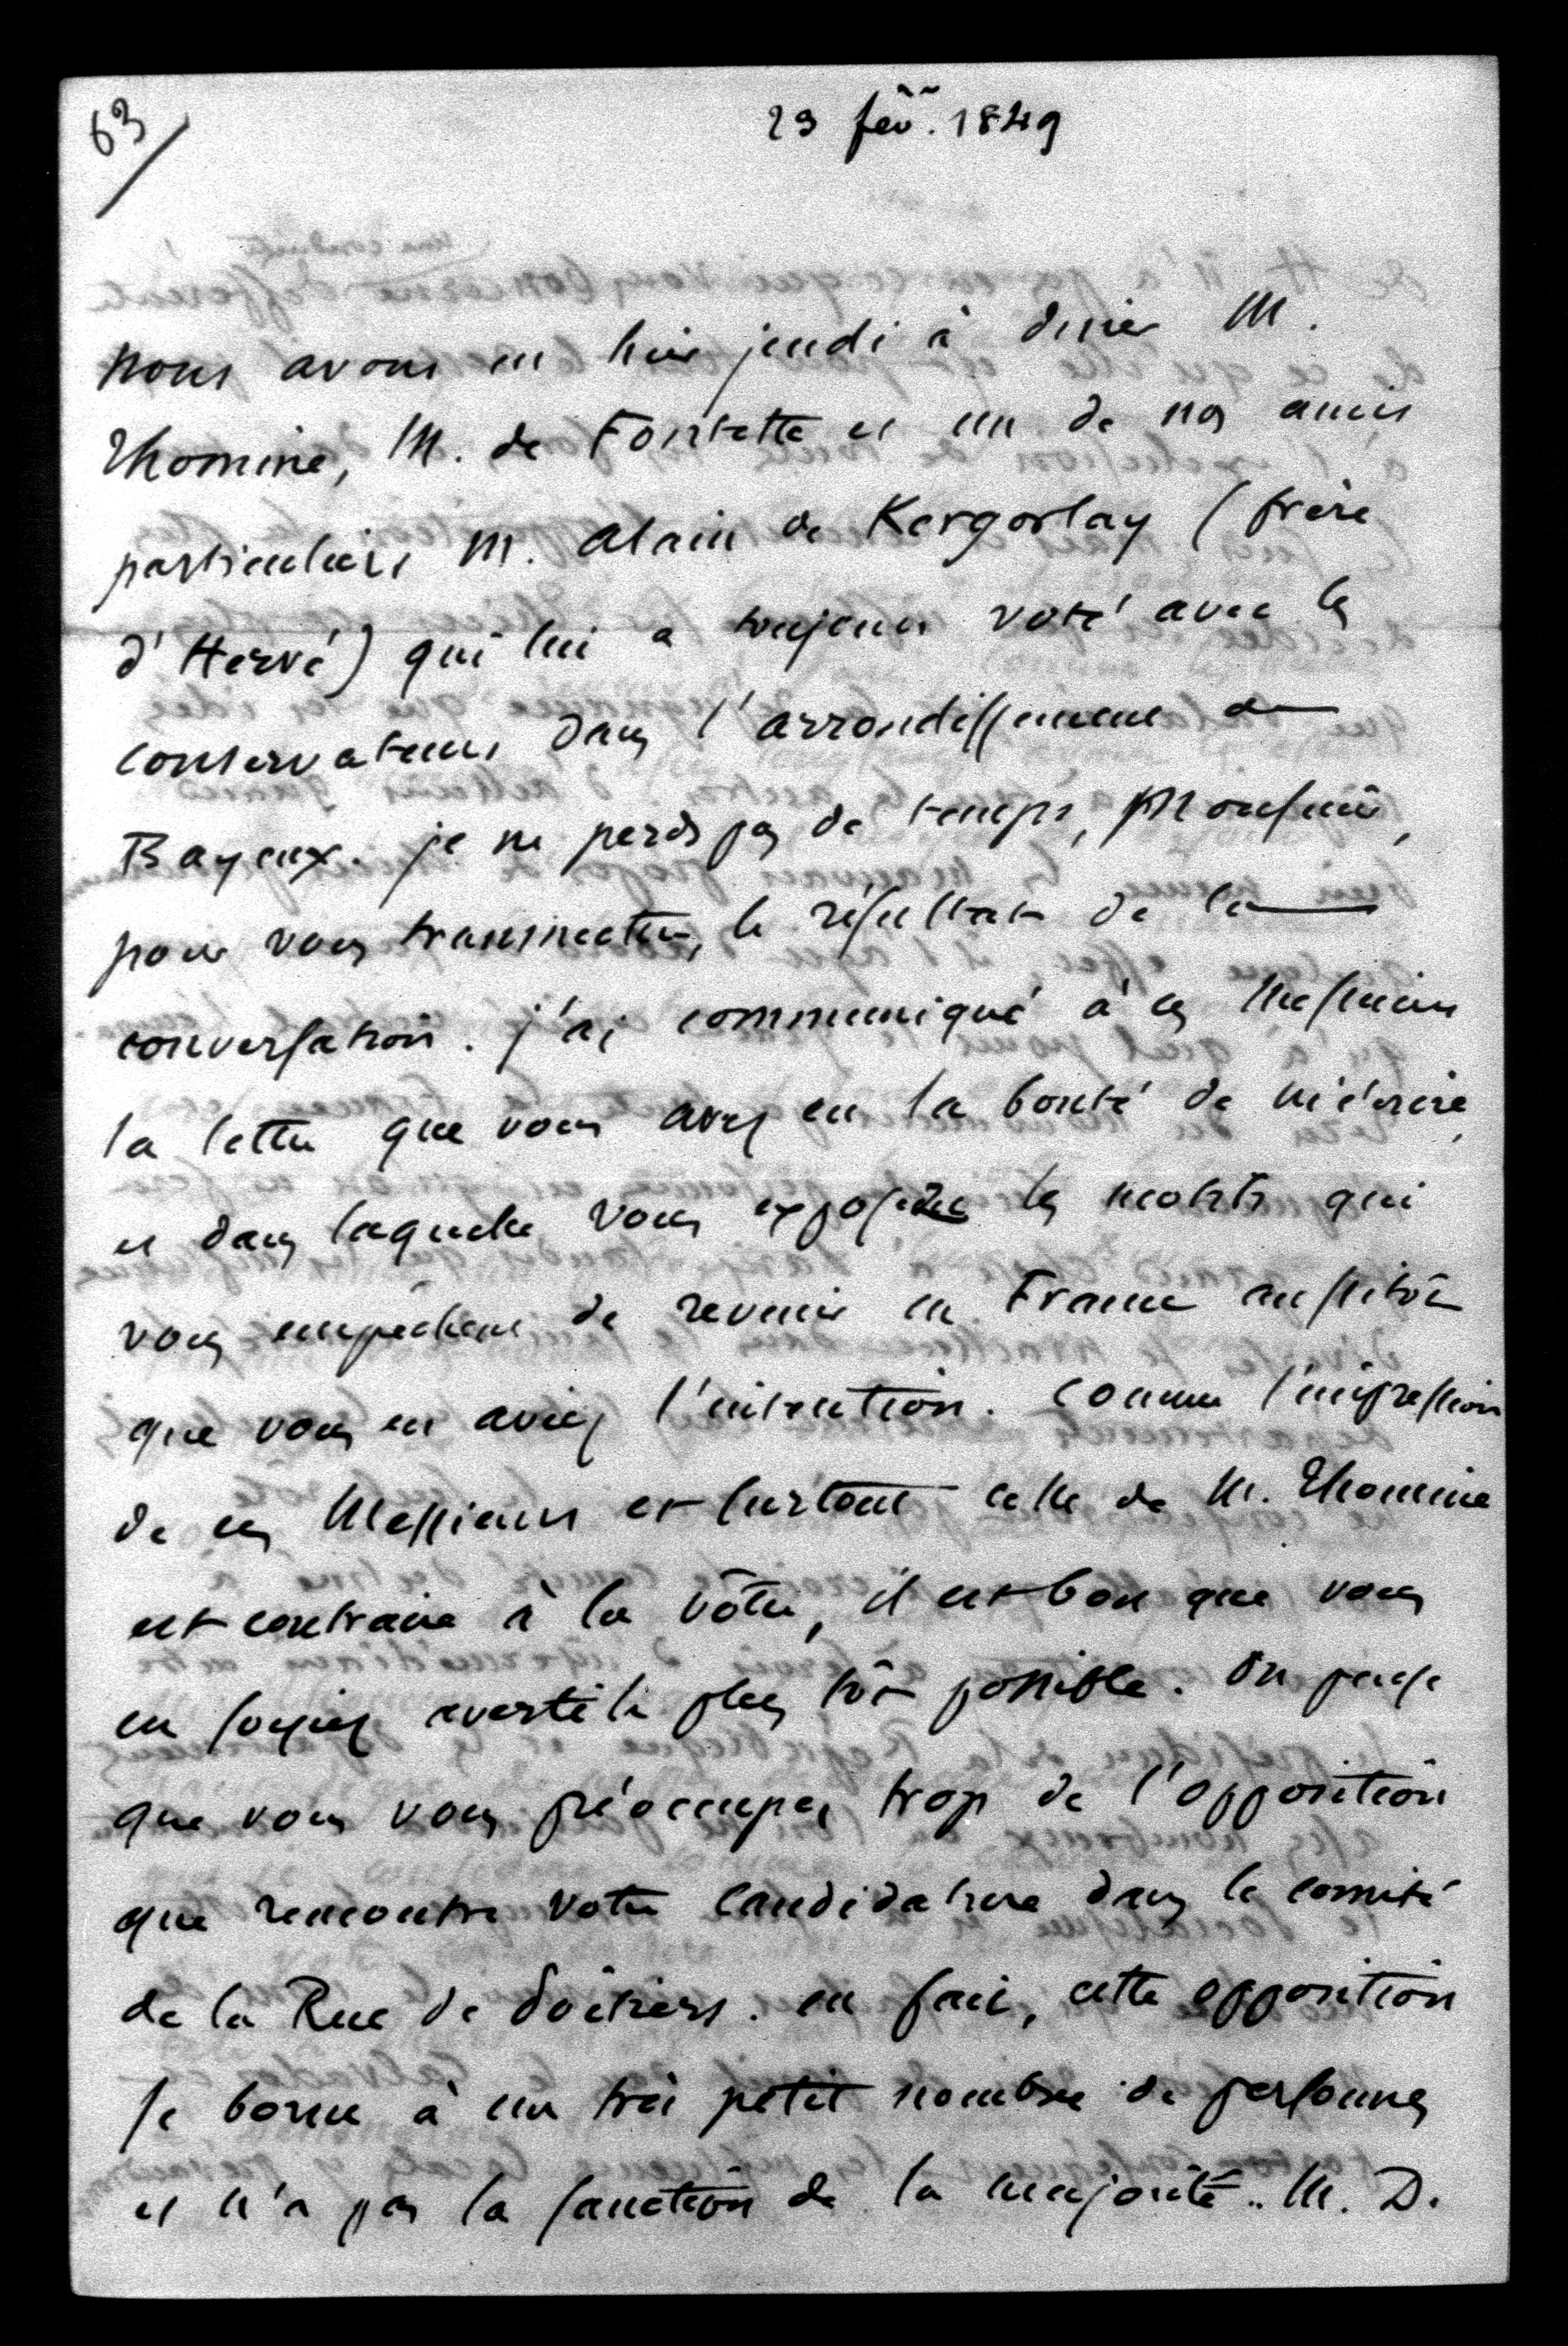 63/
23 fév. 1849
Nous avons eu hier jeudi à diner M.
Thomine, M. de Fontette et un de nos amis
particuliers M. Alain de Kergorlay (frère
d'Hervé) qui lui a toujours voté avec les
conservateurs dans l'arrondissement de
Bayeux. je ne perds pas de temps, Monsieur,
pour vous transmettre, le résultat de la
conversation. j'ai communiqué à ces Messieurs
la lettre que vous avez eu la bonté de m'écrire,
et dans laquelle vous exposez les motifs qui
vous empêchent de revenir en France aussitôt
que vous en aviez l'intention. Comme l'impression
de ces Messieurs et surtout celle de M. Thomine
est contraire à la vôtre, il est bon que vous
en soyiez averti le plus tôt possible. On pense
que vous vous préoccupez trop de l'opposition
que rencontre votre candidature dans le comité
de la Rue de Poitiers. en fait, cette opposition
se borne à un très petit nombre de personnes
et n'a pas la sanction de la majorité. M. D.